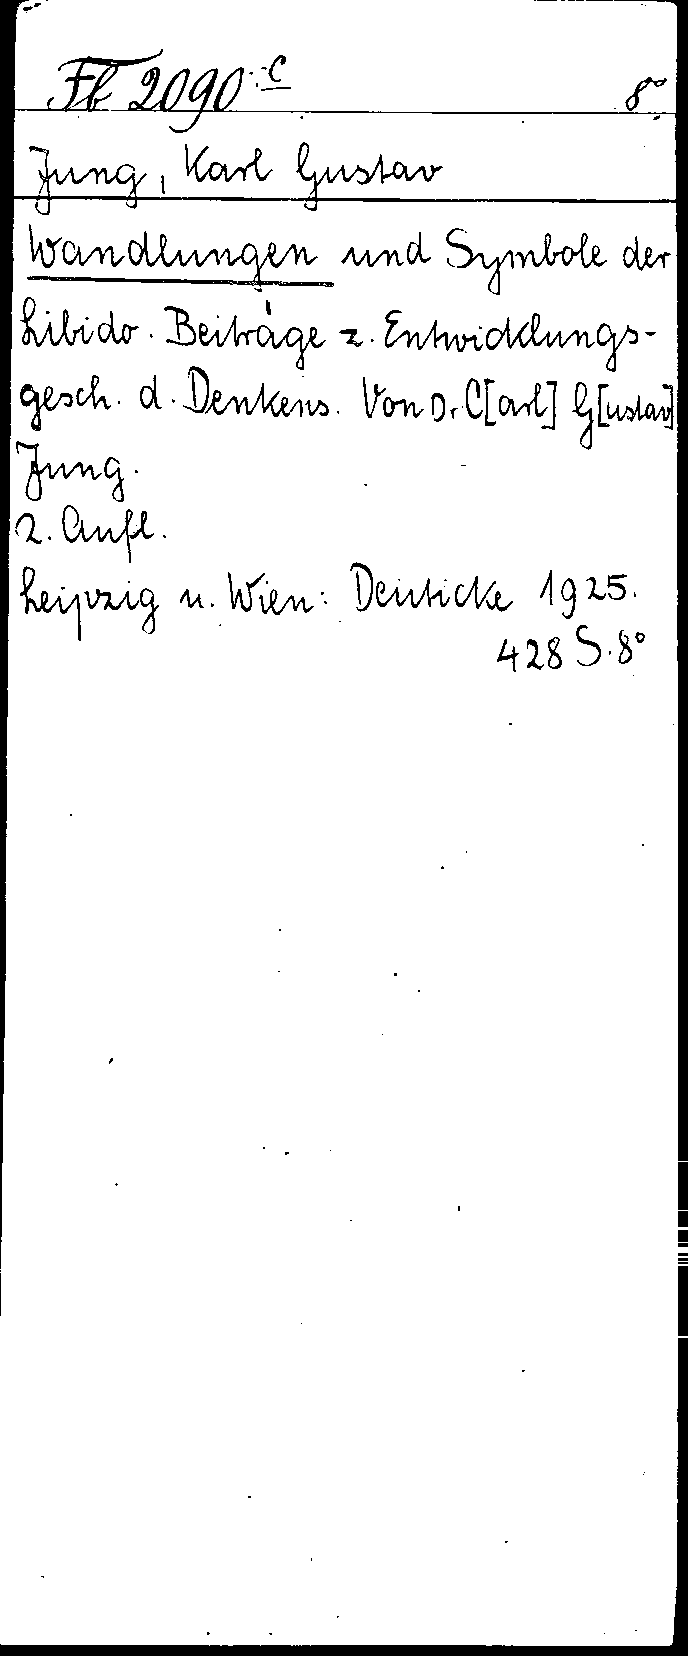 Fb 2090:c 8°
Jung, Karl Gustav
Wandlungen und Symbole der
Libido. Beiträge z. Entwicklungs-
gesch. d. Denkens. Von Dr. C[arl] G[ustav]
Jung.
2. Aufl.
Leipzig u. Wien: Deuticke 1925.
428 S. 8°